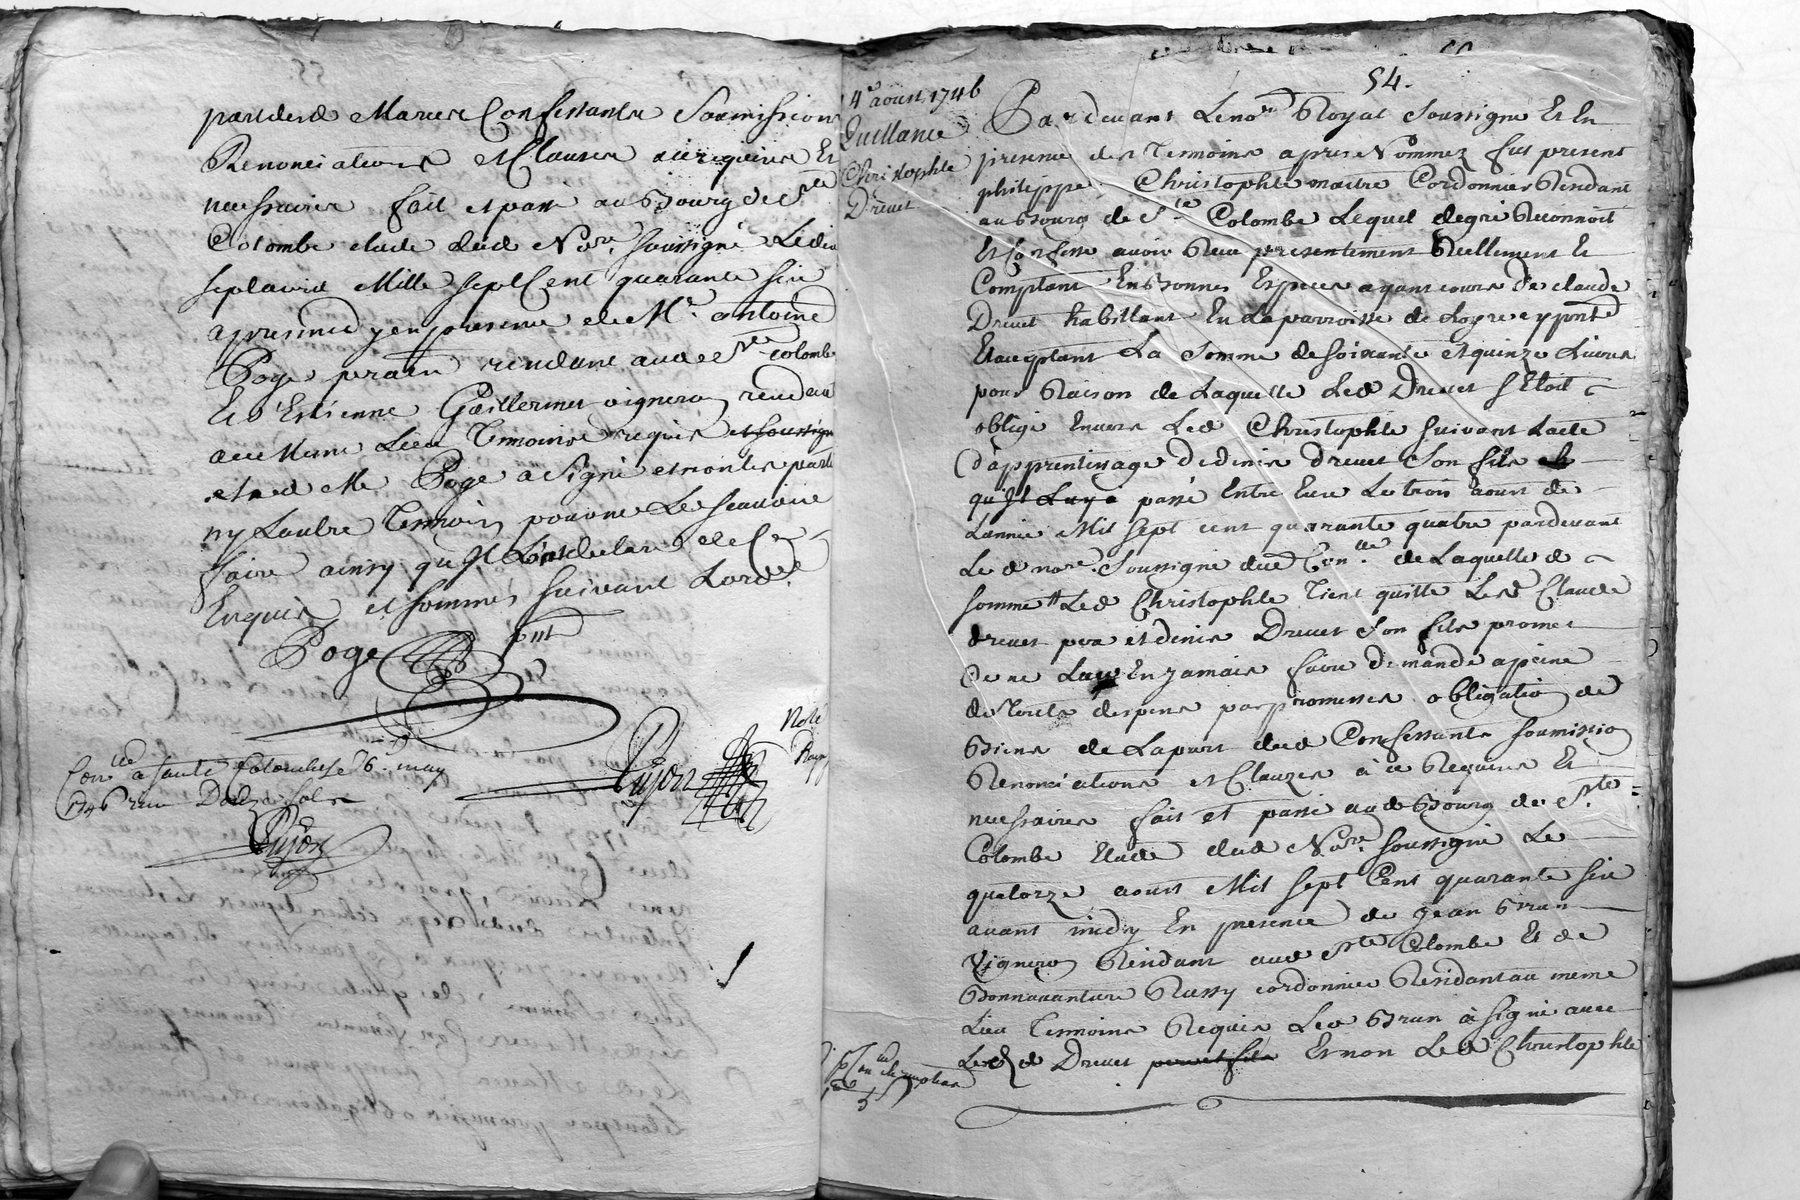 parledud Marier Confessants Soumissions
Renonciations et Clauses à ce requises Et
necessaires fait et passé au Bourg de Ste
Colombe etude dud Nore. soussigné Le dix
sept avril Mille sept Cent quarante six
apres midy en presence de Mr. antoine
Poge resident aud Ste colombe
Et d'Estienne Guillermet vigneron resident
au meme Lieu Temoins requis et soussign
et led Me Poge a Signé et non les parties
ny Lautre Temoin pour ne Le scavoir
faire ainsy qu'Il L'ont declaré de Ce
Enquis et sommes suivant Lord.ce
Poge pnt
Pujon
Notre
Royal
Conllé a sainte Colombe le 26. may
1746 reçu Douze sols
Pujon
54.
4e aoust 1746
Quittance
Christophle
Drevet
Pardevant Le nore Royal soussigné Et En
presence des Temoins apres Nommez fut present
philippe Christophle maitre Cordonnier Residant
au Bourg de Ste Colombe Lequel de gré Reconnoit
Et Confesse avoir Receu presentement Reellement Et
Comptant En Bonnes Especes ayant cours de claude
Drevet habittant En La parroisse de Loyre cy present
Et acceptant La somme de soixante et quinze Livres
pour Raison de Laquelle Led Drevet s'Etoit
obligé Envers Led Christophle suivant Lacte
d'apprentissage de denis drevet son fils
qu'Il Luy a passé Entre Eux Le trois aoust de
Lannée Mil sept cent quarante quatre pardevant
Le d nore. Soussigné due Conllé. de Laquelle d
somme Led Christophle Tient quitte Led Claude
drevet pere et denis Drevet son fils promet
de ne Leur En jamais faire demande a peine
de touts depens par promesses obligation de
Biens de Lapart dud Confessants soumission
Renonciations et Clauzes à ce Requises Et
necessaires fait et passé aud Bourg de Ste
Colombe Etude dud Nore. soussigné Le
quatorze aoust Mil sept Cent quarante six
avant midy En presence de jean Brun
Vigneron Residant aud Ste Colombe Et de
Bonnavanture Russy cordonnier Residant au meme
Lieu Temoins Requis Led Brun à signé avec
Led Drevet pere et fils Et non Led Christophle